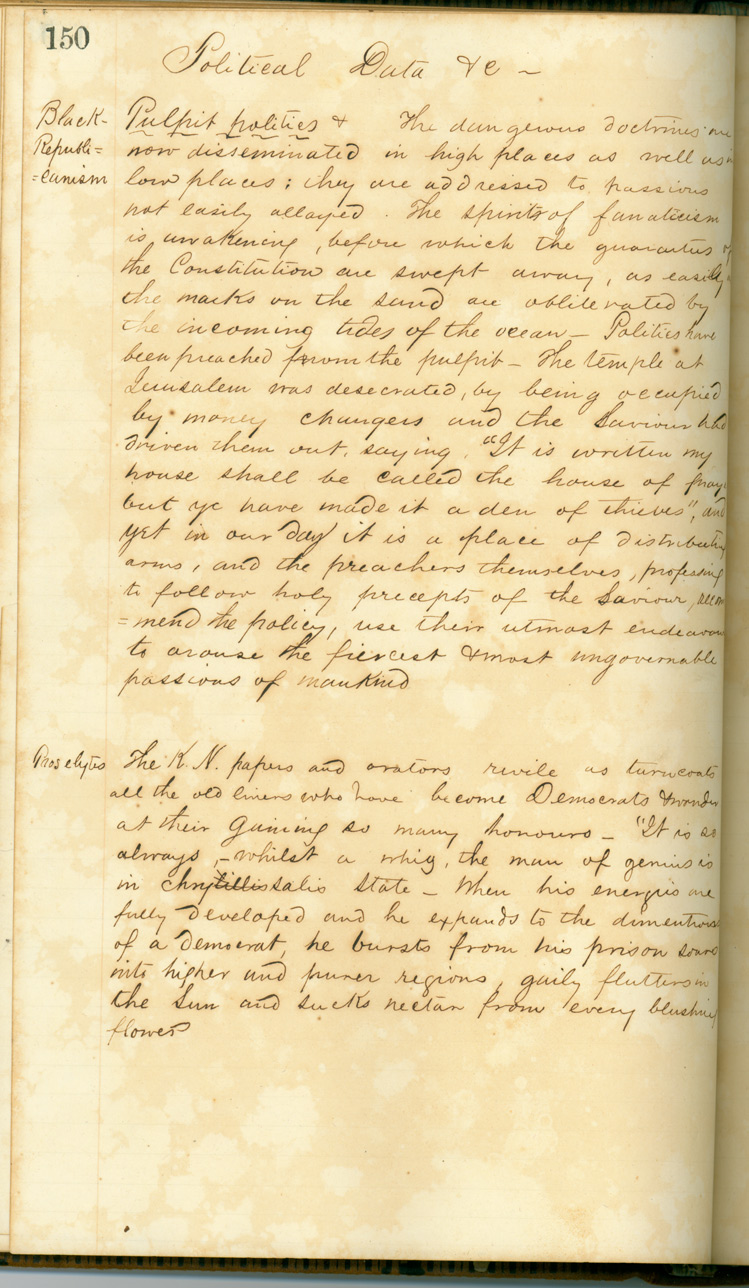 150
Political Data &c –
Black-
Republi=
=canism
Pulpit politics & The dangerous doctrines are
now disseminated in high places as well as in
low places; they are addressed to passions
not easily allayed. The spirits of fanaticism
is awakening, before which the guarantes of
the Constitution are swept away, as easily as
the marks on the sand are obliterated by
the incoming tides of the ocean – Politics have
been preached from the pulpit – The temple at
Jerusalem was desecrated, by being occupied
by money changers and the Saviour had
driven them out, saying, "It is written my
house shall be called the house of pray
but ye have made it a den of thieves", and
yet in our day it is a place of distributing
arms, and the preachers themselves, professing
to follow holy precepts of the Saviour, recom
=mend the policy, use their utmost endeavour
to arouse the fiercest & most ungovernable
passions of mankind
Proselytes
The K.N. papers and orators revile as turncoats
all the old liners who have become Democrats & wonder
at their gaining so many honours – "It is so
always, – whilst a whig, the man of genius is
in chrytillissalis state – When his energies are
fully developed and he expands to the dimentions
of a Democrat, he bursts from his prison soars
into higher and purer regions, gaily flutters in
the Sun and sucks nectar from every blushing
flower